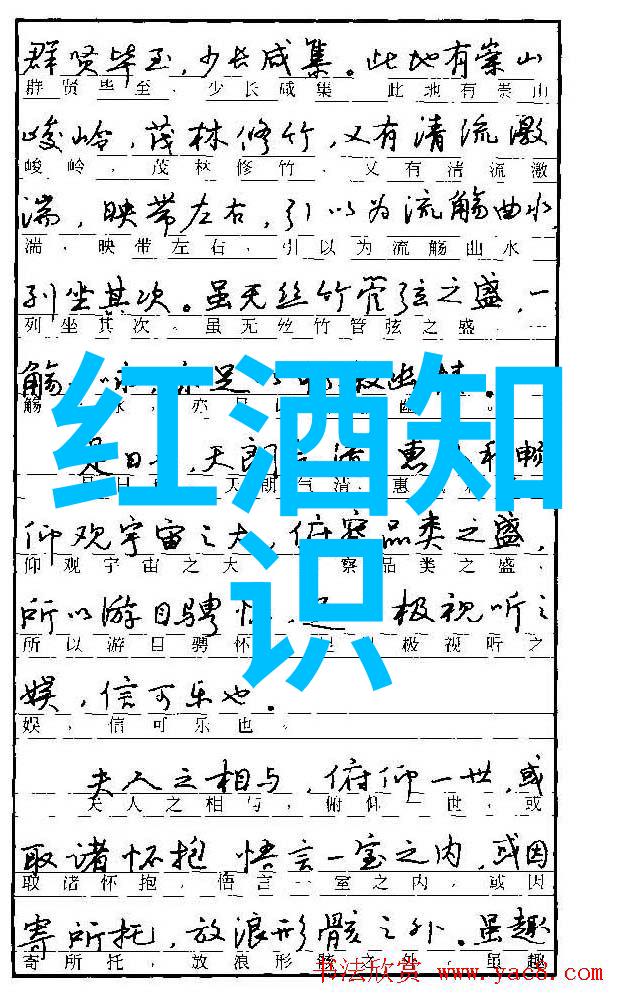 群贤毕至，少长咸集。此地有崇山
群贤毕至，少长咸集。此地有崇山
峻岭，茂林修竹，又有清流激
峻岭，茂林修竹，又有清流激
湍，映带左右，引以为流觞曲水，
湍，映带左右，引以为流觞曲水
列坐其次。虽无丝竹管弦之盛，一
列坐其次。虽无丝竹管弦之盛，一
觞
觞 咏，亦足
红酒知识
是日 天朗 惠 和畅
是日 天朗气清，惠
仰观宇宙之大，俯察品类之盛，
仰观宇宙之大 察品类之盛，
所以游目骋怀，足 极视听之
所以游目骋怀 极视听之
娱，信可乐也。
娱，信可乐也。
夫人之相与，俯仰一世，或
夫人之相与，俯仰一世，或
取诸怀抱 悟言一室之内，或因
取诸怀抱，悟言一室之内，或因
寄所托，放浪形骸之外。虽趣
寄所托，放浪形骸之外。虽趣
书法欣赏 www.yac8.com